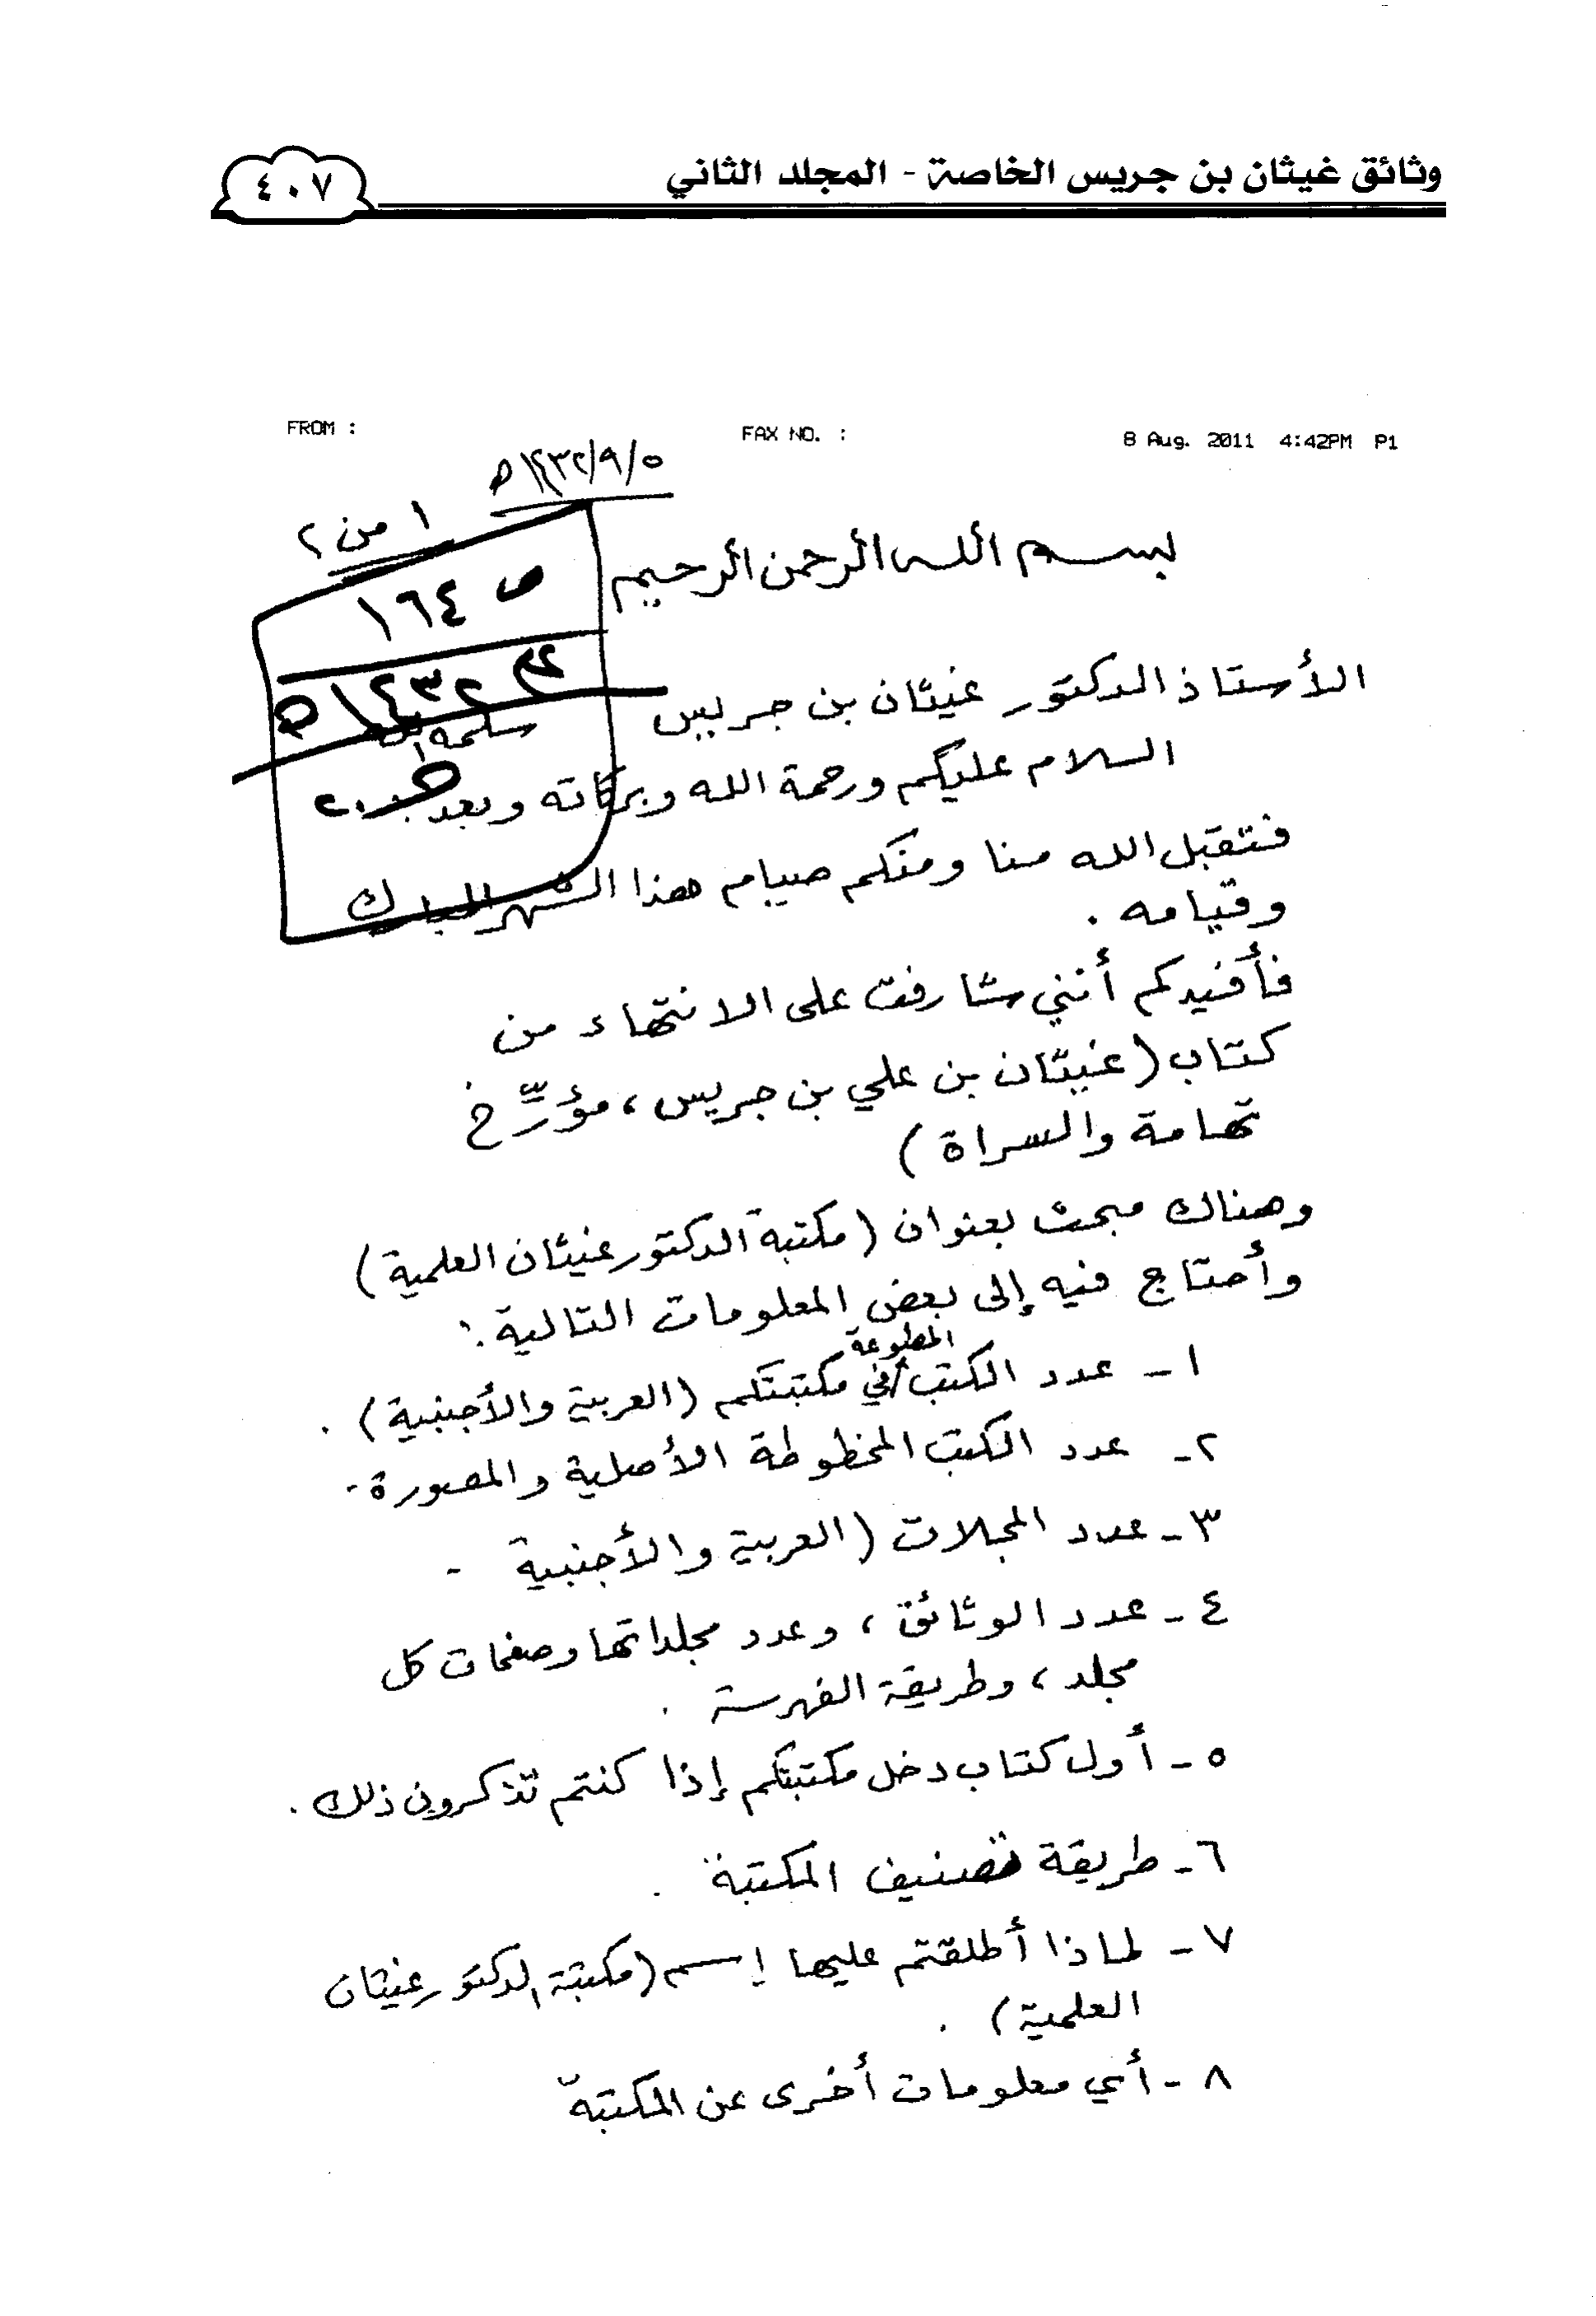 وثائق غيثان بن جريس الخاصة - المجلد الثاني
٤٠٧
FROM :
FAX NO. :
8 Aug. 2011 4:42PM P1
١٤٣٢/٩/٥هـ
١ من ٢
ص ١٦٤
١٤٣٢هـ
بسم الله الرحمن الرحيم
الأستاذ الدكتور غيثان بن جريس
السلام عليكم ورحمة الله وبركاته وبعد
فتقبل الله منا ومنكم صيام هذا الشهر المبارك
وقيامه .
فأفيدكم أنني شارفت على الانتهاء من
كتاب (غيثان بن علي بن جريس ، مؤرِّخ
تهامة والسراة )
وهناك مبحث بعنوان (مكتبة الدكتور غيثان العلمية)
وأحتاج فيه إلى بعض المعلومات التالية :
١ - عدد الكتب المطبوعة في مكتبتكم (العربية والأجنبية) .
٢ - عدد الكتب المخطوطة الأصلية والمصورة .
٣ - عدد المجلات (العربية والأجنبية .
٤ - عدد الوثائق ، وعدد مجلداتها وصفحات كل
مجلد ، وطريقة الفهرسة .
٥ - أول كتاب دخل مكتبتكم إذا كنتم تذكرون ذلك .
٦ - طريقة تصنيف المكتبة .
٧ - لماذا أطلقتم عليها إسم (مكتبة الدكتور غيثان
العلمية) .
٨ - أي معلومات أخرى عن المكتبة